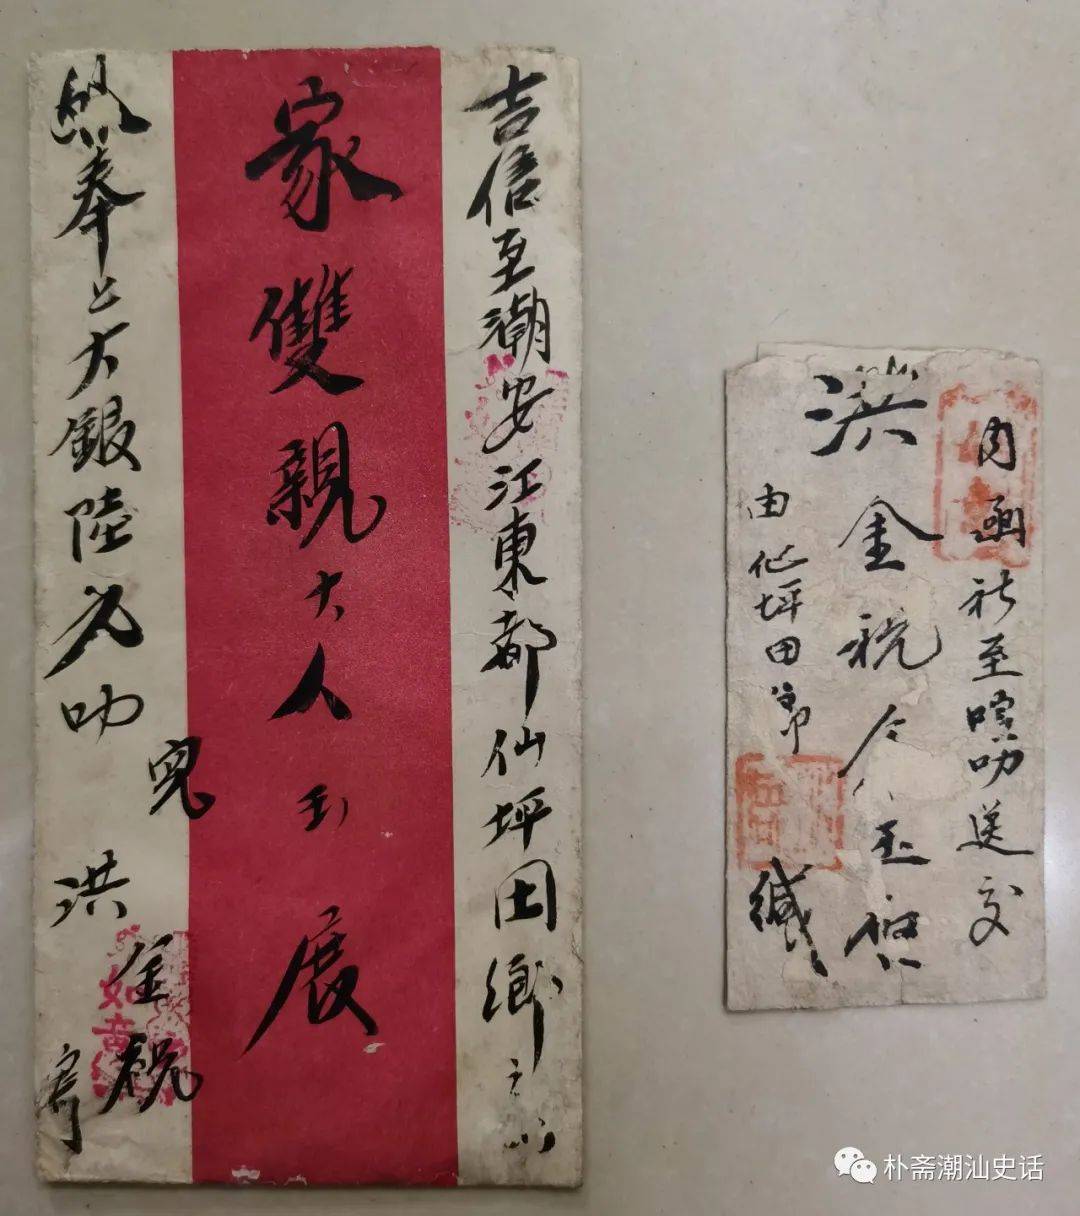 吉信至潮安江東都仙坪田鄉
家雙親大人 展
奉上大銀陸元叻
兒 洪金税 寄
内函 至 叻送交
洪金税 玉
由仙坪田 緘
朴斋潮汕史话